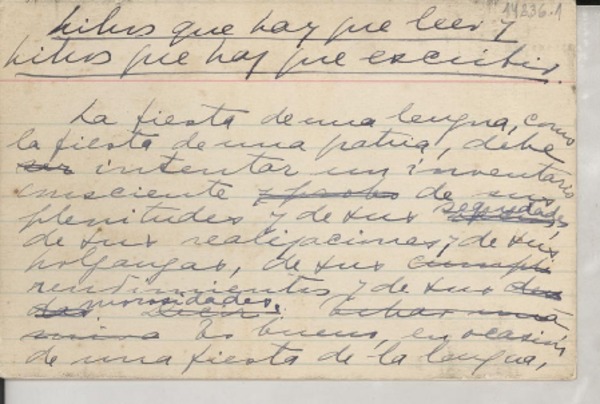 14236.1
Libros que hay que leer y
libros que hay que escribir.
La fiesta de una lengua, como
la fiesta de una patria, debe
ser intentar un inventario
consciente de sus
plenitudes y de sus
de sus realizaciones y de sus
holganzas, de sus
rendimientos y de sus
morosidades.
Es bueno, en ocasión
de una fiesta de la lengua,